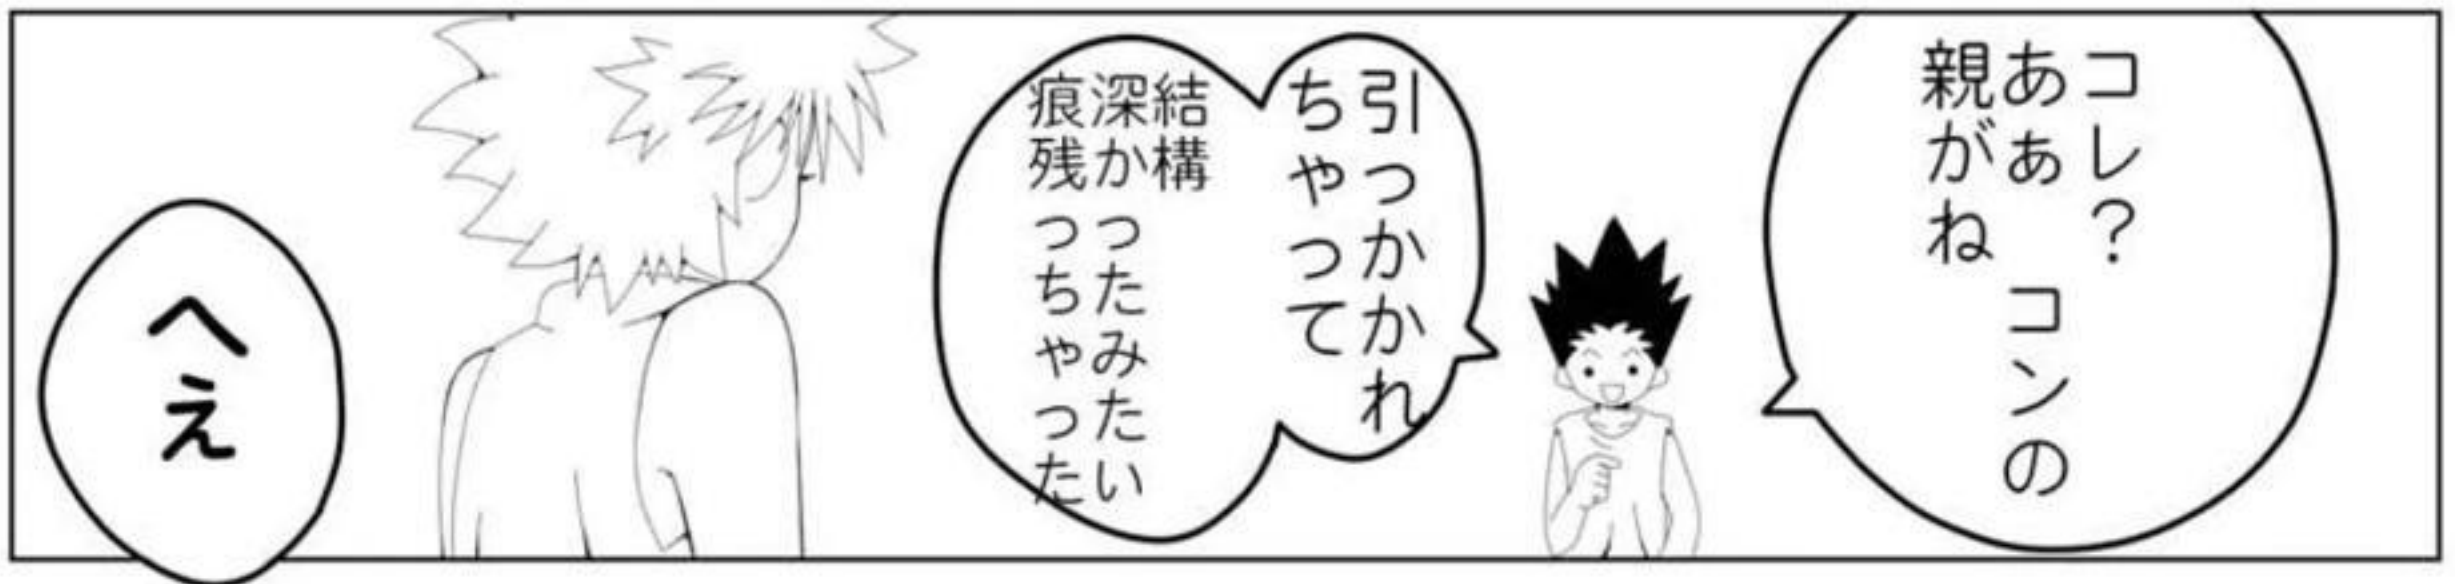 コレ?
あぁ コンの
親がね
引っかかれ
ちゃって
結構
深かったみたい
痕残っちゃった
へえ